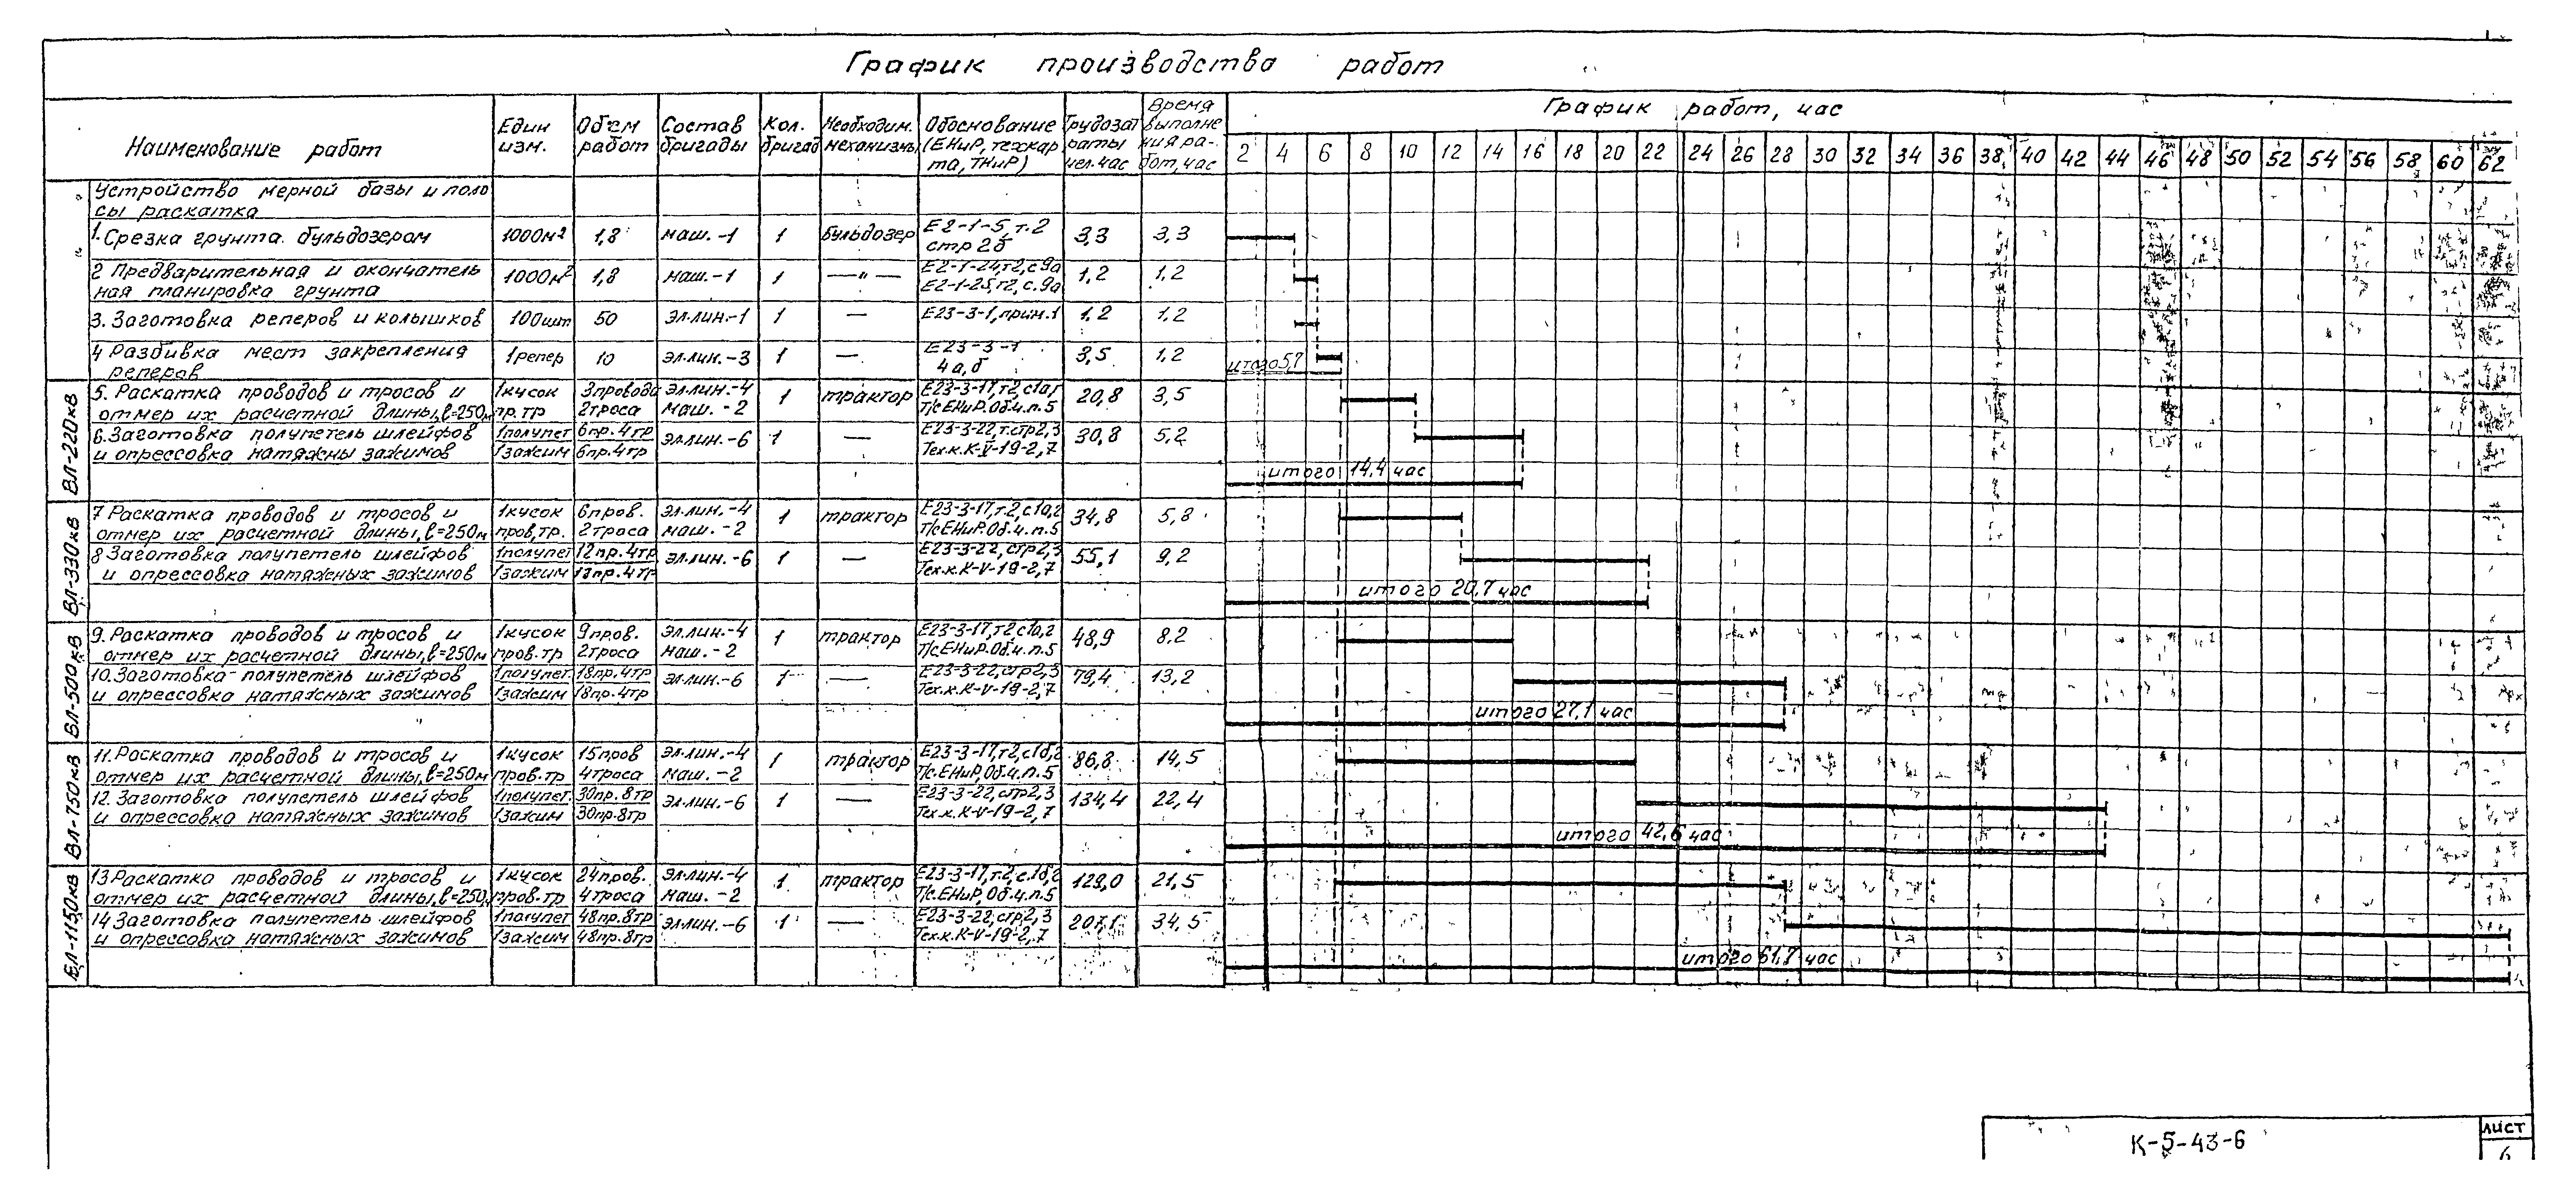 График производства работ
Наименование работ
Един изм.
Объем работ
Состав бригады
Кол. бригад
Необходим. механизмы
Обоснование (ЕНиР, техкарта, ТНиР)
Трудозатраты чел.час
Время выполнения работ, час
График работ, час
2 4 6 8 10 12 14 16 18 20 22 24 26 28 30 32 34 36 38 40 42 44 46 48 50 52 54 56 58 60 62
Устройство мерной базы и поло
сы раскатка
1. Срезка грунта бульдозером 1000м² 1,8 маш.-1 1 бульдозер Е2-1-5, т.2 стр 2б 3,3 3,3
2 Предварительная и окончатель
ная планировка грунта 1000м² 1,8 маш.-1 1 —"— Е2-1-24,т2,с9а Е2-1-25,т2,с.9а 1,2 1,2
3. Заготовка реперов и колышков 100шт 50 эл.лин.-1 1 — Е23-3-1, прим.1 1.2 1,2
4 Разбивка мест закрепления
реперов 1репер 10 эл.лин.-3 1 — Е23-3-1 4а,б 3,5 1,2
итого 5,7
ВЛ-220кВ
5. Раскатка проводов и тросов и 1кусок 3провода эл.лин.-4 1 трактор Е23-3-17,т2,с1а,г 20,8 3,5
отмер их расчетной длины, ℓ=250м пр.тр 2троса маш.-2 Т/сЕНиР.Об.ч.п.5
6. Заготовка полупетель шлейфов 1полупет 6пр.4тр эл.лин.-6 1 — Е23-3-22,т.стр2,3 30,8 5,2
и опрессовка натяжны зажимов 1зажим 6пр.4тр Тех.к.К-V-19-2,7
итого 14,4 час
ВЛ-330кВ
7 Раскатка проводов и тросов и 1кусок 6пров. эл.лин.-4 1 трактор Е23-3-17,т.2,с1а,2 34,8 5,8
отмер их расчетной длины, ℓ=250м пров,тр. 2троса маш.-2 Т/сЕНиР.Об.ч.п.5
8 Заготовка полупетель шлейфов 1полупет 12пр.4тр эл.лин.-6 1 — Е23-3-22,стр2,3 55,1 9,2
и опрессовка натяжных зажимов 1зажим 12пр.4тр Тех.к.К-V-19-2,7
итого 20,7 час
ВЛ-500кВ
9. Раскатка проводов и тросов и 1кусок 9пров. эл.лин.-4 1 трактор Е23-3-17,т2с1а,2 48,9 8.2
отмер их расчетной длины, ℓ=250м пров.тр 2троса маш.-2 Т/сЕНиР.Об.ч.п.5
10. Заготовка полупетель шлейфов 1полупет. 18пр.4тр эл.лин.-6 1 — Е23-3-22,стр2,3 79,4 13,2
и опрессовка натяжных зажимов 1зажим 18пр.4тр Тех.к.К-V-19-2,7
итого 27,1 час
ВЛ-750кВ
11. Раскатка проводов и тросов и 1кусок 15пров эл.лин.-4 1 трактор Е23-3-17,т2,с1б,2 86,8 14,5
отмер их расчетной длины, ℓ=250м пров.тр 4троса маш.-2 Т/с.ЕНиР,Об.ч.п.5
12. Заготовка полупетель шлейфов 1полупет. 30пр.8тр эл.лин.-6 1 — Е23-3-22,стр2,3 134,4 22,4
и опрессовка натяжных зажимов 1зажим 30пр.8тр Тех.к.К-V-19-2,7
итого 42,6 час
ВЛ-1150кВ
13 Раскатка проводов и тросов и 1кусок 24пров. эл.лин.-4 1 трактор Е23-3-17,т.2,с.1б,2 129,0 21,5
отмер их расчетной длины, ℓ=250, пров.тр 4троса маш.-2 Т/с.ЕНиР,Об.ч.п.5
14 Заготовка полупетель шлейфов 1полупет 48пр.8тр эл.лин.-6 1 — Е23-3-22,стр2,3 207,1 34,5
и опрессовка натяжных зажимов 1зажим 48пр.8тр Тех.к.К-V-19-2,7
итого 61,7 час
К-5-43-6
ЛИСТ
6